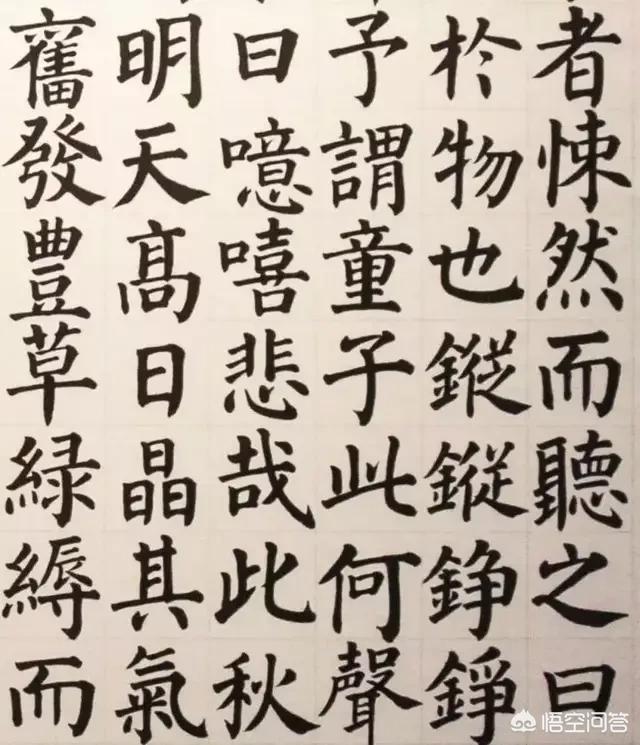 者悚然而聽之曰
於物也鏦鏦錚錚
予謂童子此何聲
曰噫嘻悲哉此秋
明天髙日晶其氣
奮發豐草緑縟而
悟空问答